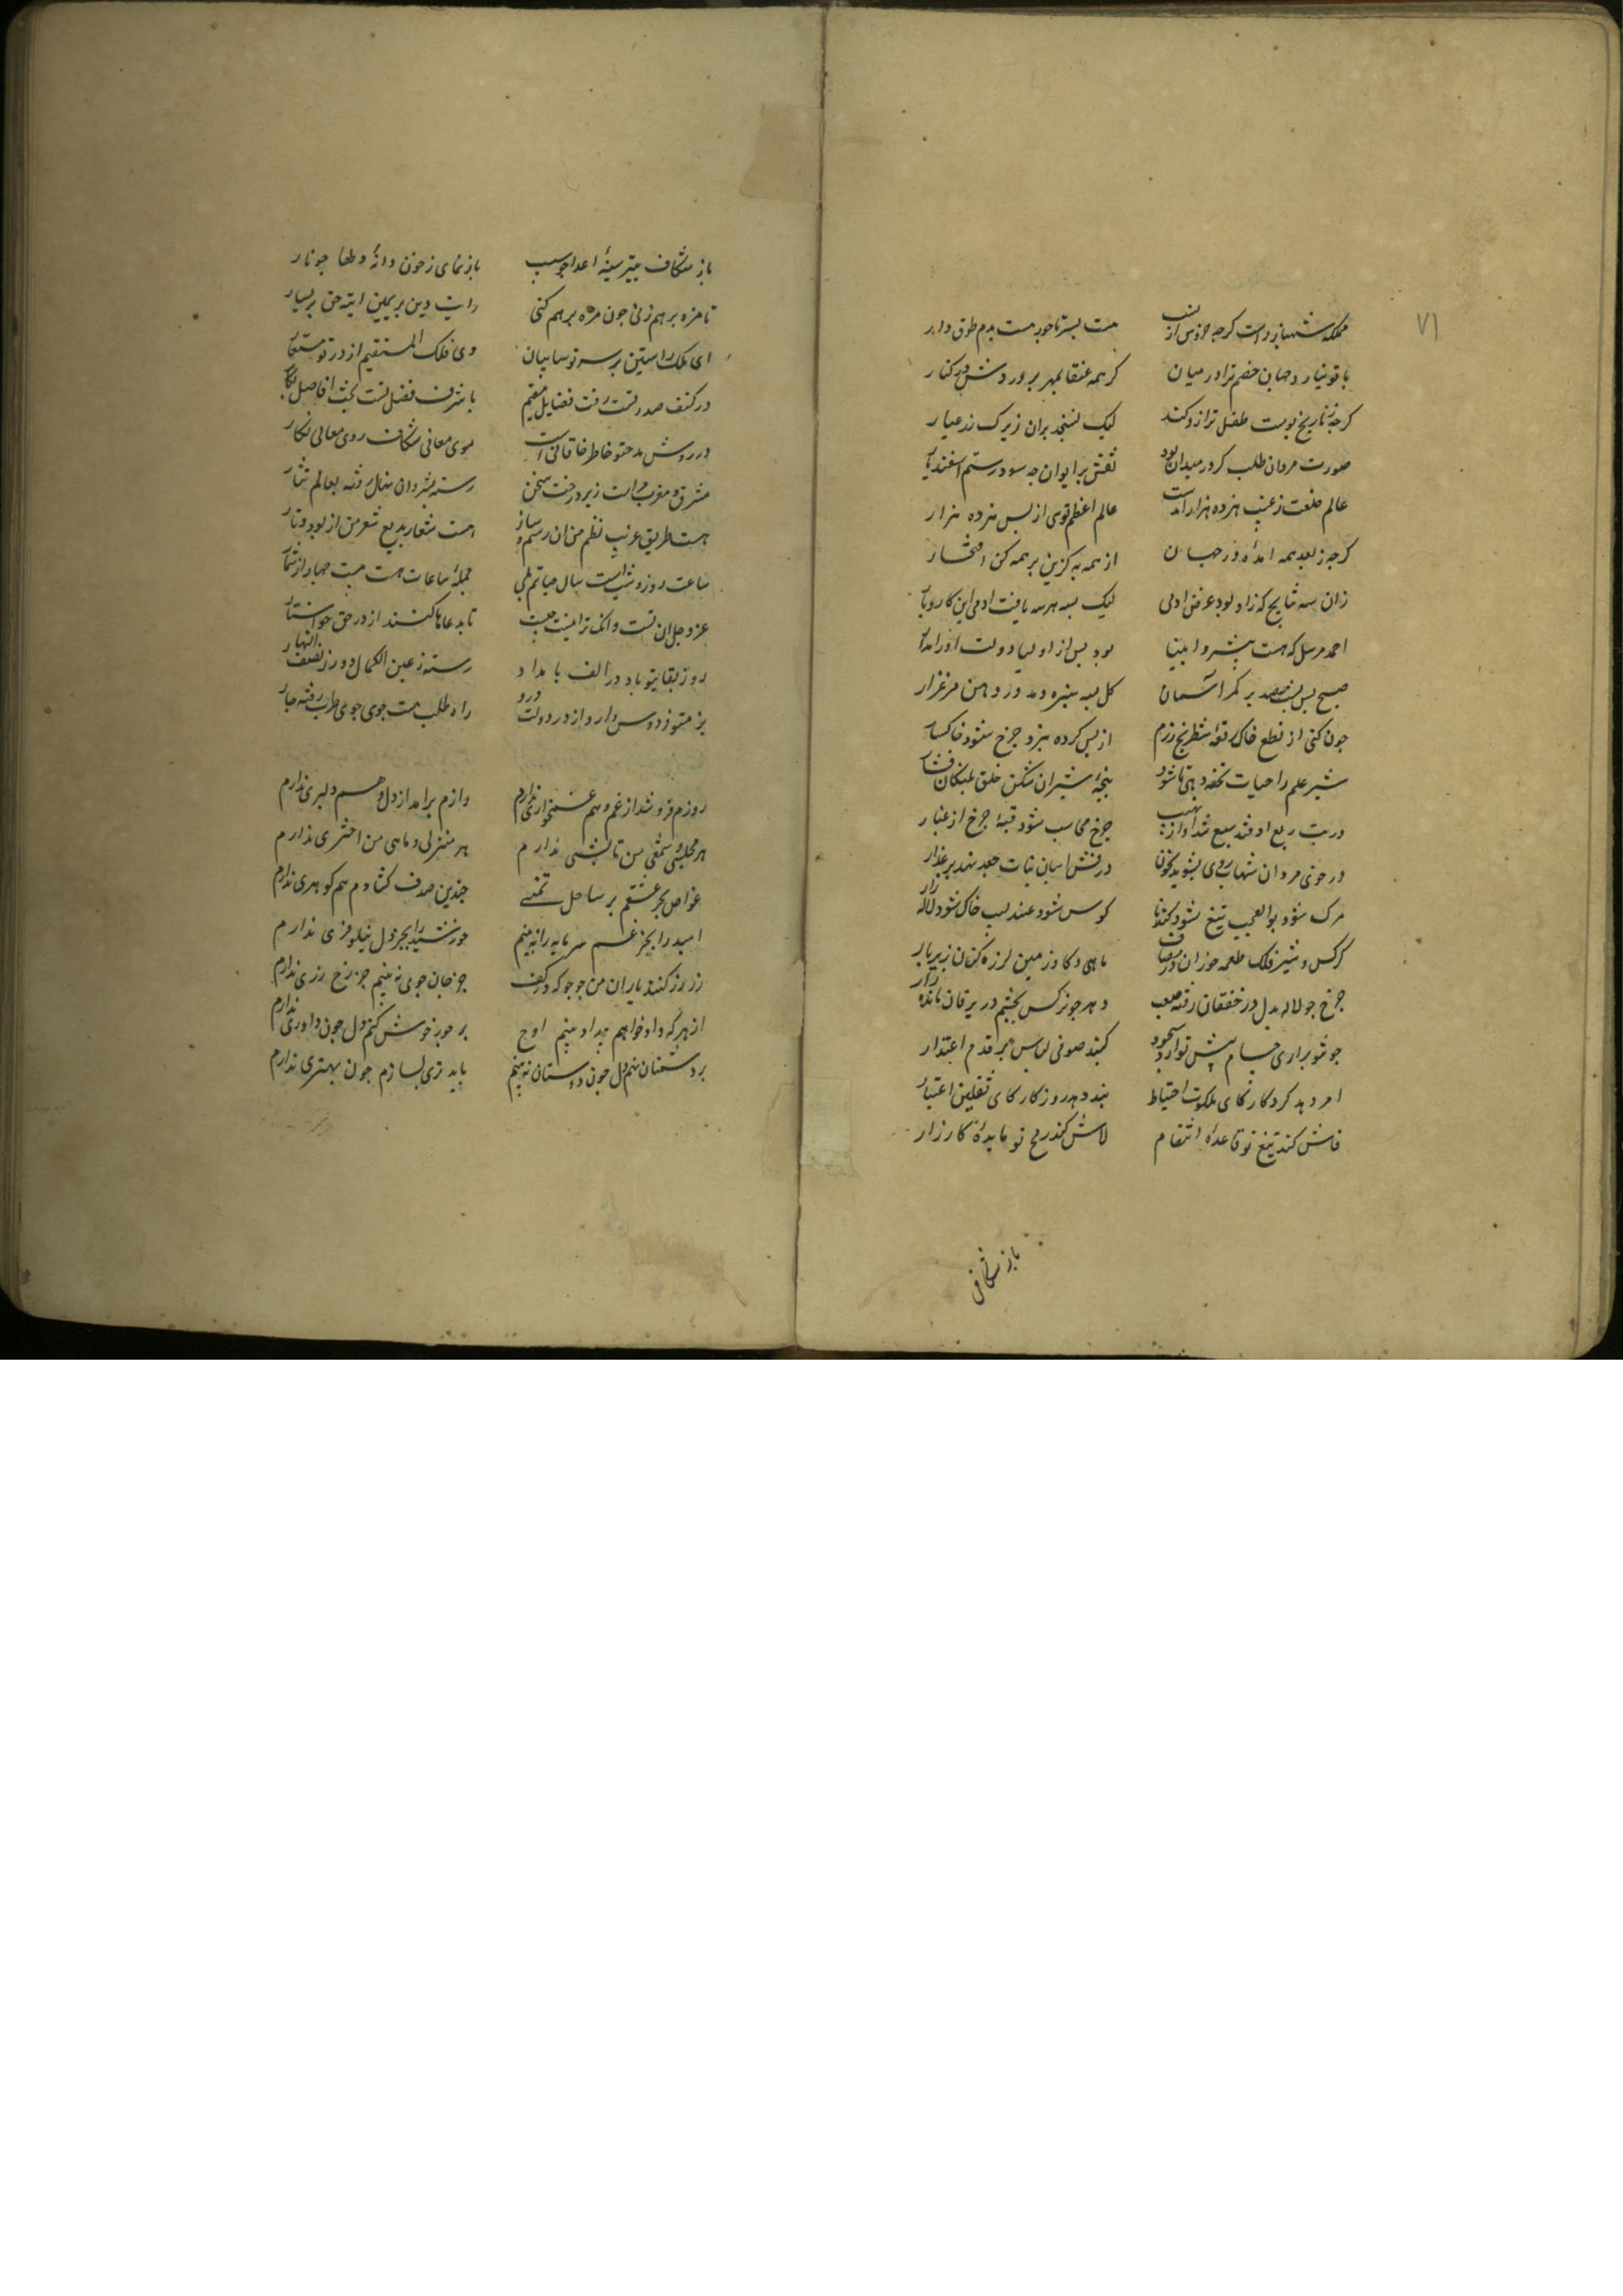 ۷۱
مملکه شهباز راست کرچه خروس از نسب
هست بسر تاجور هست بدم طوق دار
با تو نیارد جهان خصم ترا در میان
کر همه عنقا بمهر پرور دش در کنار
کرچه ز نارنج پوست طفل ترازو کند
لیک نسنجد بران زیرک زر عیار
صورت مردان طلب کز در میدان بود
نقش بر ایوان چه سود رستم اسفندیار
عالم خلقت ز غیب هژده هزار آمدست
عالم اعظم توی از پس هژده هزار
کرچه ز بعد همه آمدۀ در جهان
از همه به کزین بر همه کن افتخار
زان سه نتایج که زاد بود غرض ادمی
لیک بسه هر سه یافت ادمی این کار و بار
احمد مرسل که هست پیشرو انبیا
بود پس از اولیا دولت او را مدار
صبح پس شب رسد بر کمر آسمان
کل بسه سبزه دمد در دهن مرغزار
چون کنی از نطع خاک رقعه شطرنج رزم
از پس کرده نبرد چرخ شود خاکسار
شیر علم را حیات تحفه دهی تا شود
پنجۀ شیران شکن حلق پلنکان فشار
در تب ربع اوفتد سبع شداد از نهیب
چرخ محاسب شود قبۀ چرخ از غبار
در خوی مردان شهاب روی بشوید بخون
درفش اسبان نبات جعد نهد بر عذار
مرک شود بوالعجب تیغ شود کندنا
کوس شود عندلیب خاک شود لاله زار
کرکس و شیر فلک طعمه خوران در مصاف
ماهی و کاو زمین لرزه کنان زیر بار
چرخ چو لاله بدل در خفقان رفته صعب
دهر چو نرکس بچشم در یرقان مانده زار
چو تو براری حسام پیش تو ارد سجود
کنبد صوفی لباس بر قدم اعتذار
امر دهد کردکار کای ملکوت احتیاط
پند دهد روزکار کای ثقلین اعتبار
فاش کند تیغ تو قاعدۀ انتقام
لاش کند رمح تو مایدۀ کارزار
باز شکاف
باز شکاف بتیر سینۀ اعدا چو سیب
باز نمای ز خون دانۀ دلها چو نار
تا مزه بر هم زنی چون مژه بر هم کنی
رایت دین بر یمین ایت حق بر یسار
ای ملک راستین بر سر تو سایبان
وی فلک المستقیم از در تو مستعار
در کنف صدر تست رفت فضایل مقیم
با شرف فضل تست بخت افاضل بکار
در روش مدحتو خاطر خاقانی است
موی معانی شکاف روی معالی نکار
مشرق و مغرب مراست زیر درخت سخن
رسته ز شروان نهال رفته بعالم ثمار
هست طریق غریب نظم من ان رسم و ساز
هست شعار بدیع شعر من از بود و تار
ساعت روز و شب است سال حیاتم بلی
جملۀ ساعات هست بیست چهار از شمار
عز و جل ان تست وانک ترا نیست جفت
تا بدعاها کنند از در حق خواستار
روز بقایتو باد در الف بامداد
رسته ز عین الکمال دور ز نصف النهار
بزمتو فردوس وار واز در دولت درو
راه طلب هشت جوی جوی طرب رفته چار
روزم فرو شد از غم و هم غمخواری ندارم
رازم برامد از دل و هم دلبری ندارم
هر مجلسی و شمعی من تابشی ندارم
هر منزلی و ماهی من اختری ندارم
غواص بحر عشقم بر ساحل تمنی
چندین صدف کشادم هم کوهری ندارم
امید را بجز غم سرمایه را نه بینم
خورشید را بجز دل نیلوفری ندارم
زر زر کنند یاران من جو جو که در کف
جز جان جوی نه بینم جز رخ زری ندارم
از هر که داد خواهم بیداد بینم اوخ
بر جور خوش کنم دل چون داوری ندارم
بر دشمنان نهم دل چون دوستان نه بینم
با بدتری بسازم چون بهتری ندارم